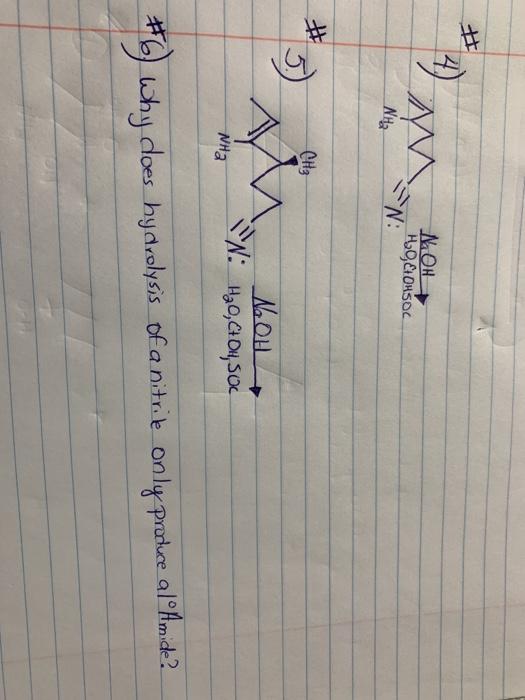 # 4.)
NH₂
≡N:
NaOH
H₂O, EtOH, 50C
# 5.)
CH₃
NH₂
≡N:
NaOH
H₂O, EtOH, 50C
#6) Why does hydrolysis of a nitrile only produce a 1° Amide?